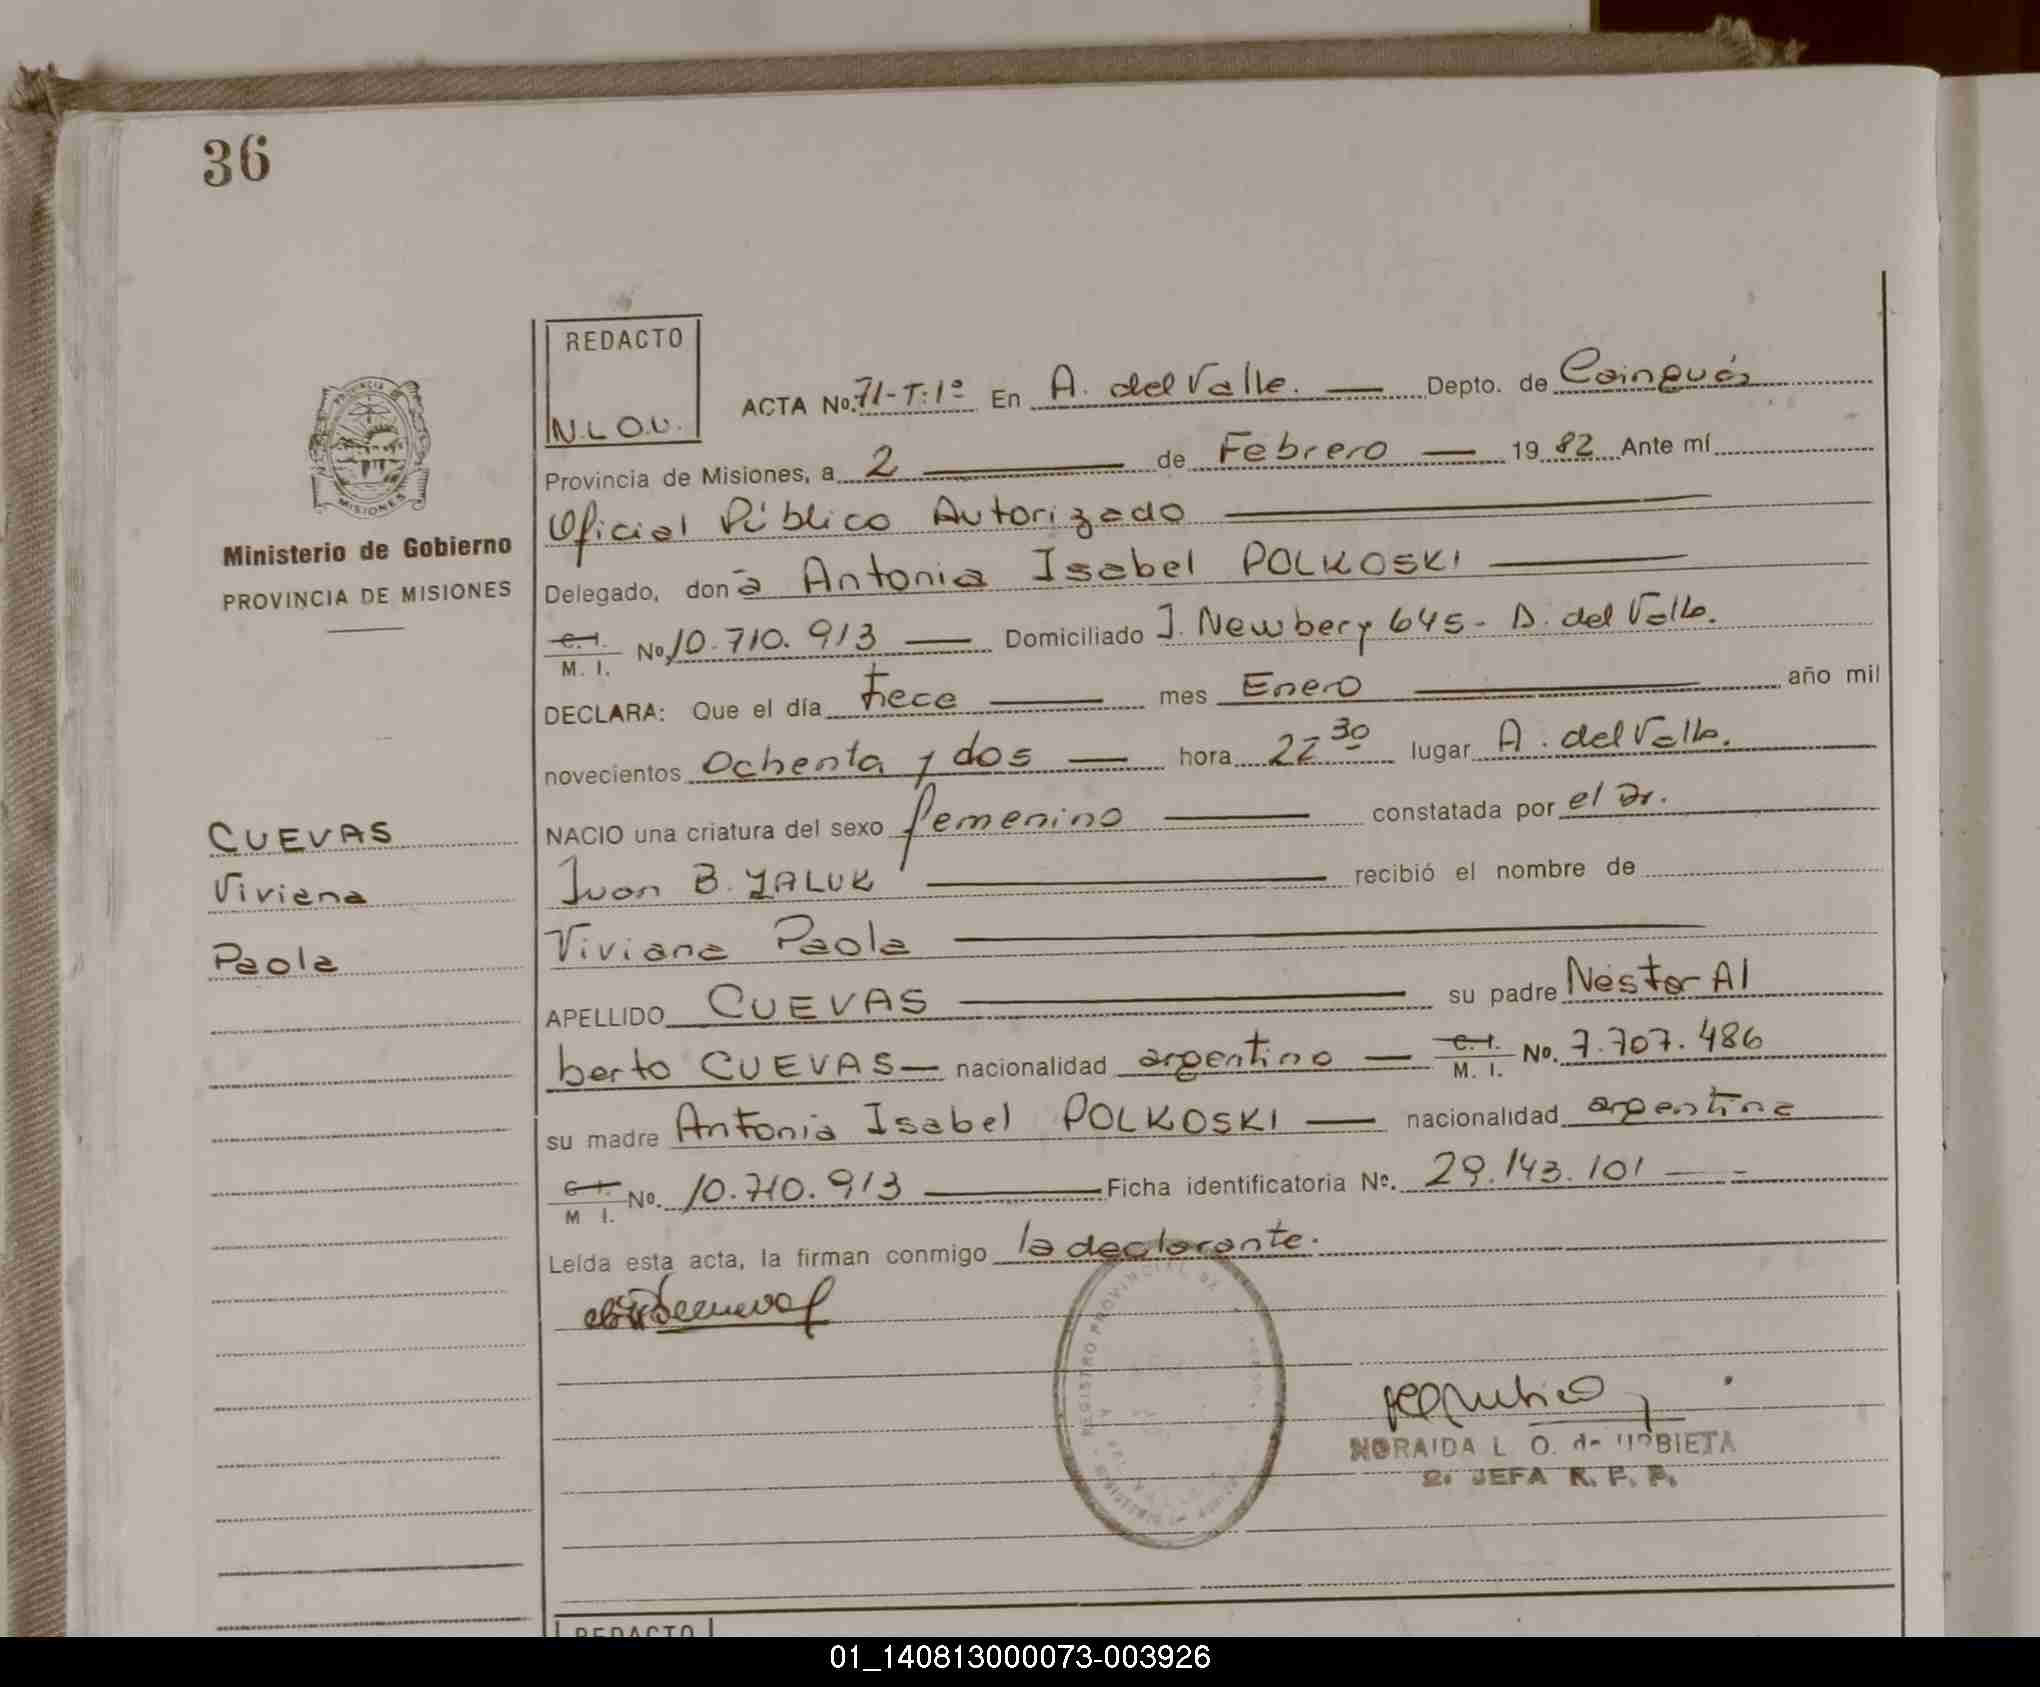 36
REDACTO
N.L.O.U.
ACTA No. 71-T:1º En A. del Valle. Depto. de Cainguás
Provincia de Misiones, a 2 de Febrero 19 82 Ante mí
Oficial Público Autorizado
Delegado, don ª Antonia Isabel POLKOSKI
C. I.
M. I. No 10.710.913 Domiciliado J. Newbery 645 - A. del Valle.
DECLARA: Que el día trece mes Enero año mil
novecientos Ochenta y dos hora 22 30 lugar A. del Valle.
NACIO una criatura del sexo femenino constatada por el Dr.
Ivan B. YALUK recibió el nombre de
Viviana Paola
APELLIDO CUEVAS su padre Néstor Al
berto CUEVAS nacionalidad argentino C. I.
M. I. No. 7.707.486
su madre Antonia Isabel POLKOSKI nacionalidad argentina
C. I.
M I. No. 10.710.913 Ficha identificatoria Nº. 29.143.101
Leída esta acta, la firman conmigo la declarante.
PROVINCIA DE
MISIONES
Ministerio de Gobierno
PROVINCIA DE MISIONES
CUEVAS
Viviana
Paola
REGISTRO PROVINCIAL DE
NORAIDA L. O. de URBIETA
2. JEFA R. P. P.
REDACTO
01_140813000073-003926